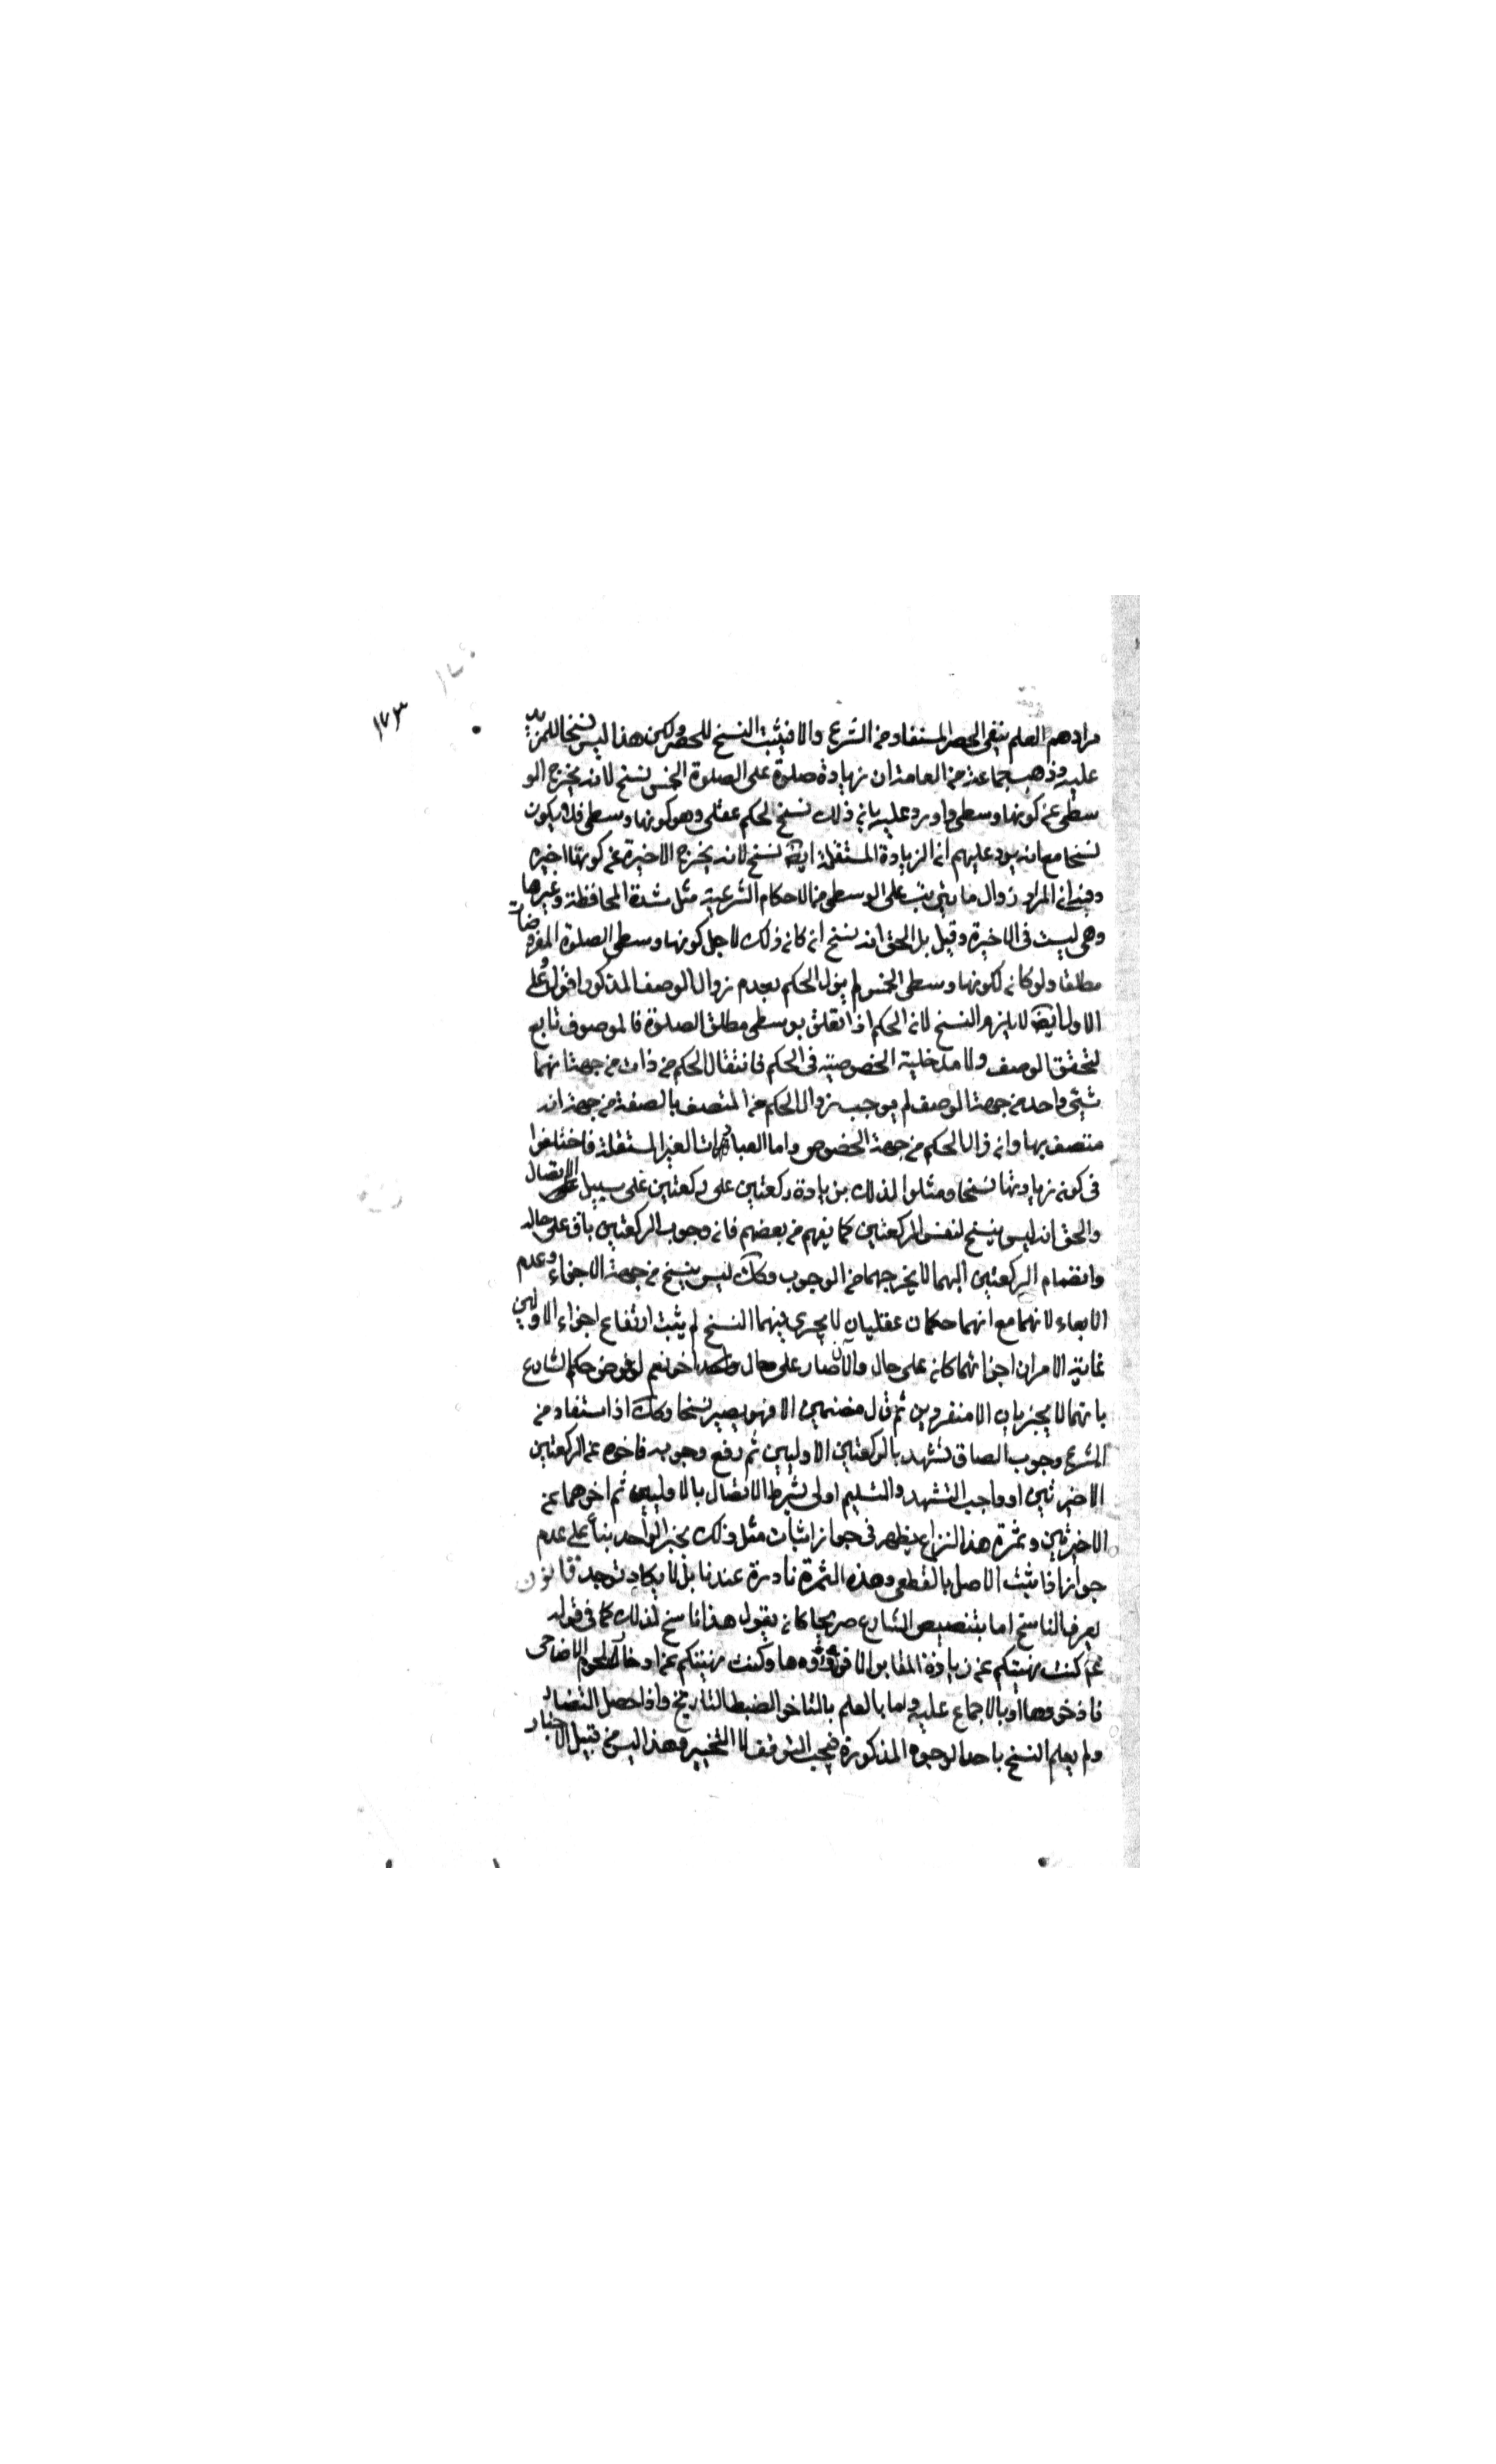 ١٧٣
مرادهم العلم بنفى الحصر المستفاد من الشرع والا فيثبت النسخ للحصر ولكن هذا ليس نسخا للمزيد
عليه وذهب جماعة من العامة ان زيادة صلوة على الصلوة الخمس نسخ لانه يخرج الو
سطى عن كونها وسطى واورد عليه بان ذلك نسخ لحكم عقلى وهو كونها وسطى فلا يكون
نسخا مع انه يرد عليهم ان الزيادة المستقلة ايضا نسخ لانه يخرج الاخيرة عن كونها اخيرة
وفيه ان المراد زوال ما يترتب على الوسطى من الاحكام الشرعية مثل شدة المحافظة وغيرها
وهى ليست فى الاخيرة وقيل بل الحق انه نسخ ان كان ذلك لاجل كونها وسطى الصلوة المفروضات
مطلقا ولو كان لكونها وسطى الخمس لم يزل الحكم بعدم زوال الوصف المذكور اقول وعلى
الاول ايضا لا يلزم النسخ لان الحكم اذا تعلق بوسطى مطلق الصلوة فالموصوف تابع
لتحقق الوصف ولا مدخلية الخصوصية فى الحكم فانتقال الحكم من ذات من جهة انهما
شئى واحد من جهة الوصف لم يوجب زوال الحكم عن المتصف بالصفة من جهة انه
متصف بها وان زال الحكم من جهة الخصوص واما العبادات الغير المستقلة فاختلفوا
فى كون زيادتها نسخا ومثلوا لذلك بزيادة ركعتين على ركعتين على سبيل الاتصال
والحق انه ليس بنسخ لنفس الركعتين كما يفهم من بعضهم فان وجوب الركعتين باق على حاله
وانضمام الركعتين اليهما لا يخرجهما من الوجوب وكك ليس بنسخ من جهة الاجزاء وعدم
الاجزاء لانهما مع انهما حكمان عقليان لا يجرى فيهما النسخ لم يثبت ارتفاع اجزاء الاوليين
غاية الامر ان اجزائهما كان على حال والآن صار على حال آخر نعم لو فرض حكم الشارع
بانهما لا يجزيان الا منفردين ثم قال منضمين الا فهو يصير نسخا وكك اذا استفاد من
الشرع وجوب الصاق تشهد بالركعتين الاوليين ثم رفع وجوبه فاخره عن الركعتين
الاخيرتين او واجب التشهد والتسليم اولى بشرط الاتصال بالاوليين ثم اخرهما عن
الاخيرتين وثمرة هذا النزاع يظهر فى جواز اثبات مثل ذلك بخبر الواحد بناء على عدم
جوازه اذا يثبت الاصل بالقطعى وهذه الثمرة نادرة عندنا بل لا يكاد توجد قانون
يعرف الناسخ اما بتنصيص الشارع صريحا كان يقول هذا ناسخ لذلك كما فى قوله
كنت نهيتكم عن زيادة المقابر الا فزوروها وكنت نهيتكم عن ادخار لحوم الاضاحى
فادخروها او بالاجماع عليه واما بالعلم بالمتاخر لضبط التاريخ واذا حصل التضاد
ولم يعلم النسخ باحد الوجوه المذكورة فيجب التوقف لا التخيير وهذا ليس من قبيل الاخبار